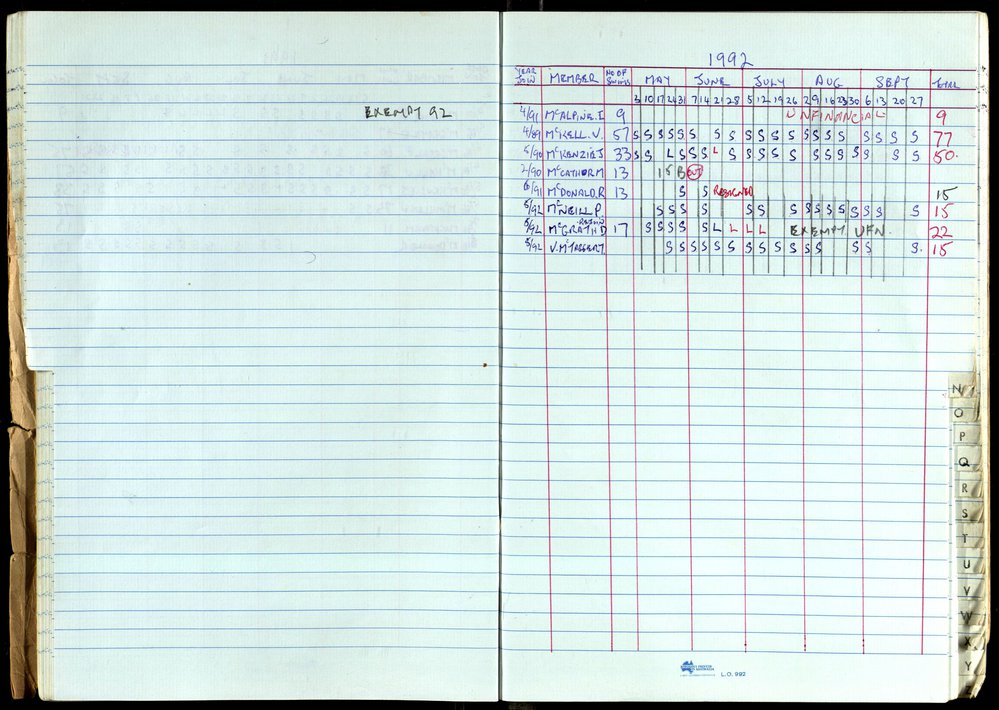 EXEMPT 92
1992
YEAR JOIN MEMBER NO OF SWIMS MAY JUNE JULY AUG SEPT TOTAL
3 10 17 24 31 7 14 21 28 5 12 19 26 2 9 16 23 30 6 13 20 27
4/91 McALPINE. I 9 UNFINANCIAL 9
4/89 McKELL. V. 57 S S S S S S S S S S S S S S S S S S S S S 77
5/90 McKENZIE J 33 S S L S S S L S S S S S S S S S S S S 50.
2/90 McCATHOR M 13 15 B OUT
6/91 McDONALD. R 13 S S RESIGNED 15
5/92 McNEILL P. S S S S S S S S S S S S S S S 15
5/92 McGRATH D 17 S S S S S L L L L EXEMPT UFN. 22
5/92 V. McTAGGERT S S S S S S S S S S S S S S S S. 15
N
O
P
Q
R
S
T
U
V
W
X
Y
L.O. 992